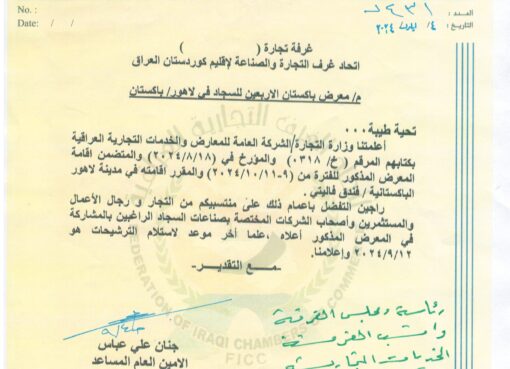 No. :
Date: / /
العدد :
التاريخ :
غرفة تجارة ( )
اتحاد غرف التجارة والصناعة لإقليم كوردستان العراق
م/ معرض باكستان الاربعين للسجاد في لاهور/ باكستان
تحية طيبة ...
أعلمتنا وزارة التجارة/الشركة العامة للمعارض والخدمات التجارية العراقية
بكتابهم المرقم (خ/ ٠٣١٨) والمؤرخ في (٢٠٢٤/٨/١٨) والمتضمن اقامة
المعرض المذكور للفترة من (٩-٢٠٢٤/١٠/١١) والمقرر اقامته في مدينة لاهور
الباكستانية / فندق فاليتي .
راجين التفضل باعمام ذلك على منتسبيكم من التجار و رجال الأعمال
والمستثمرين وأصحاب الشركات المختصة بصناعات السجاد الراغبين بالمشاركة
في المعرض المذكور أعلاه ,علما أخر موعد لاستلام الترشيحات هو
٢٠٢٤/٩/١٢ وإعلامنا.
-مـع التقديـر-
رئاسة ومجلس الغرفة
جنان علي عباس
الامين العام المساعد
FEDERATION OF IRAQI CHAMBERS OF COMMERCE
FICC